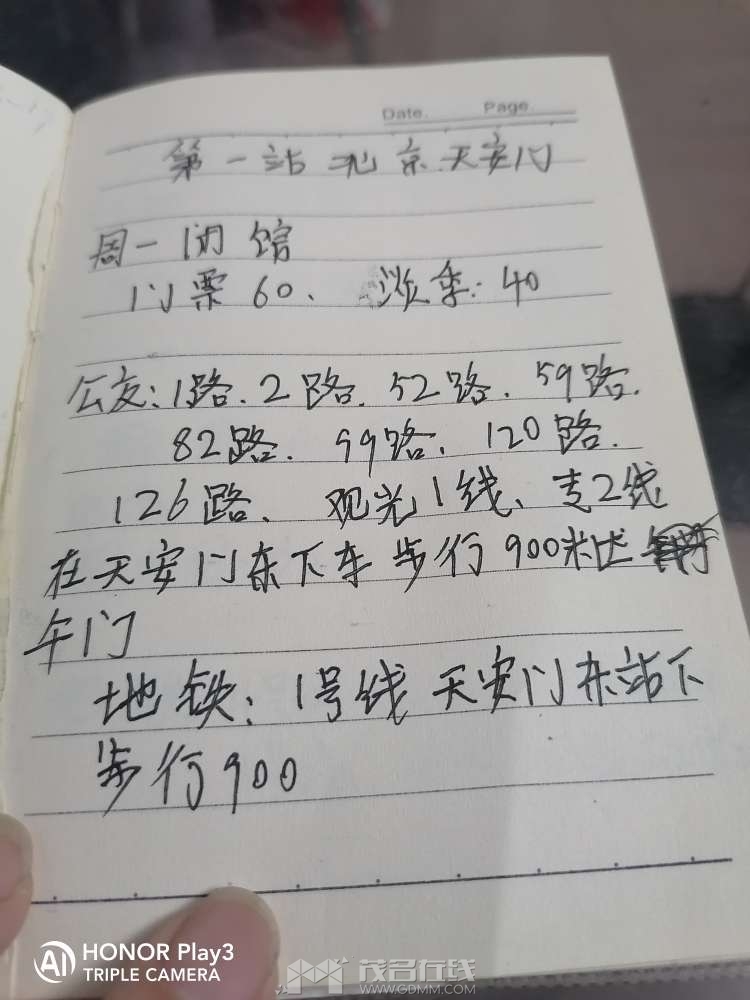 Date. Page.
第一站 北京天安门
周一闭馆
门票60. 淡季:40
公交:1路.2路.52路.59路.
82路.99路.120路.
126路、观光1线、专2线
在天安门东下车步行900米达
午门
地铁:1号线 天安门东站下
步行900
AI HONOR Play3
TRIPLE CAMERA
茂名在线
WWW.GDMM.COM